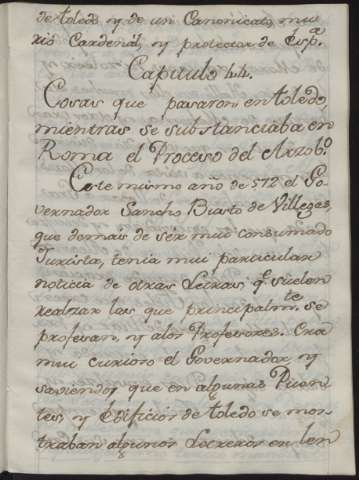 de toledo, y de un Canonicato, mu
rió Cardenal, y protector de Espª.
Capitulo 44.
Cosas que pasaron en toledo,
mientras se substanciaba en
Roma el Proceso del Arzobº.
Este mismo año de 572 el Go
vernador Sancho Busto de Villegas,
que demas de ser mui consumado
Jurista, tenia mui particular
noticia de otras Letras, qe. suelen
realzar las que principalmte. se
profesan, y a los Profesores. Era
mui curioso el Governador, y
saviendo que en algunas Puen
tes, y Edificios de toledo se mos-
traban algunos Letreros en len